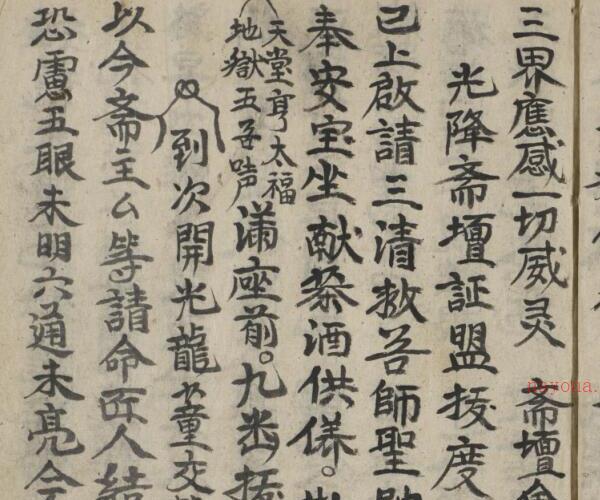 三界應感一切威灵 斋壇
光降斋壇証盟抜度
已上啟請三清救苦師聖
奉安宝坐献茶酒供养。
天堂享太福
地獄五苦声
满座前。九幽抜
到次開光龍章交
以今斋主厶等請命匠人結
恐慮五眼未明六通未亮今